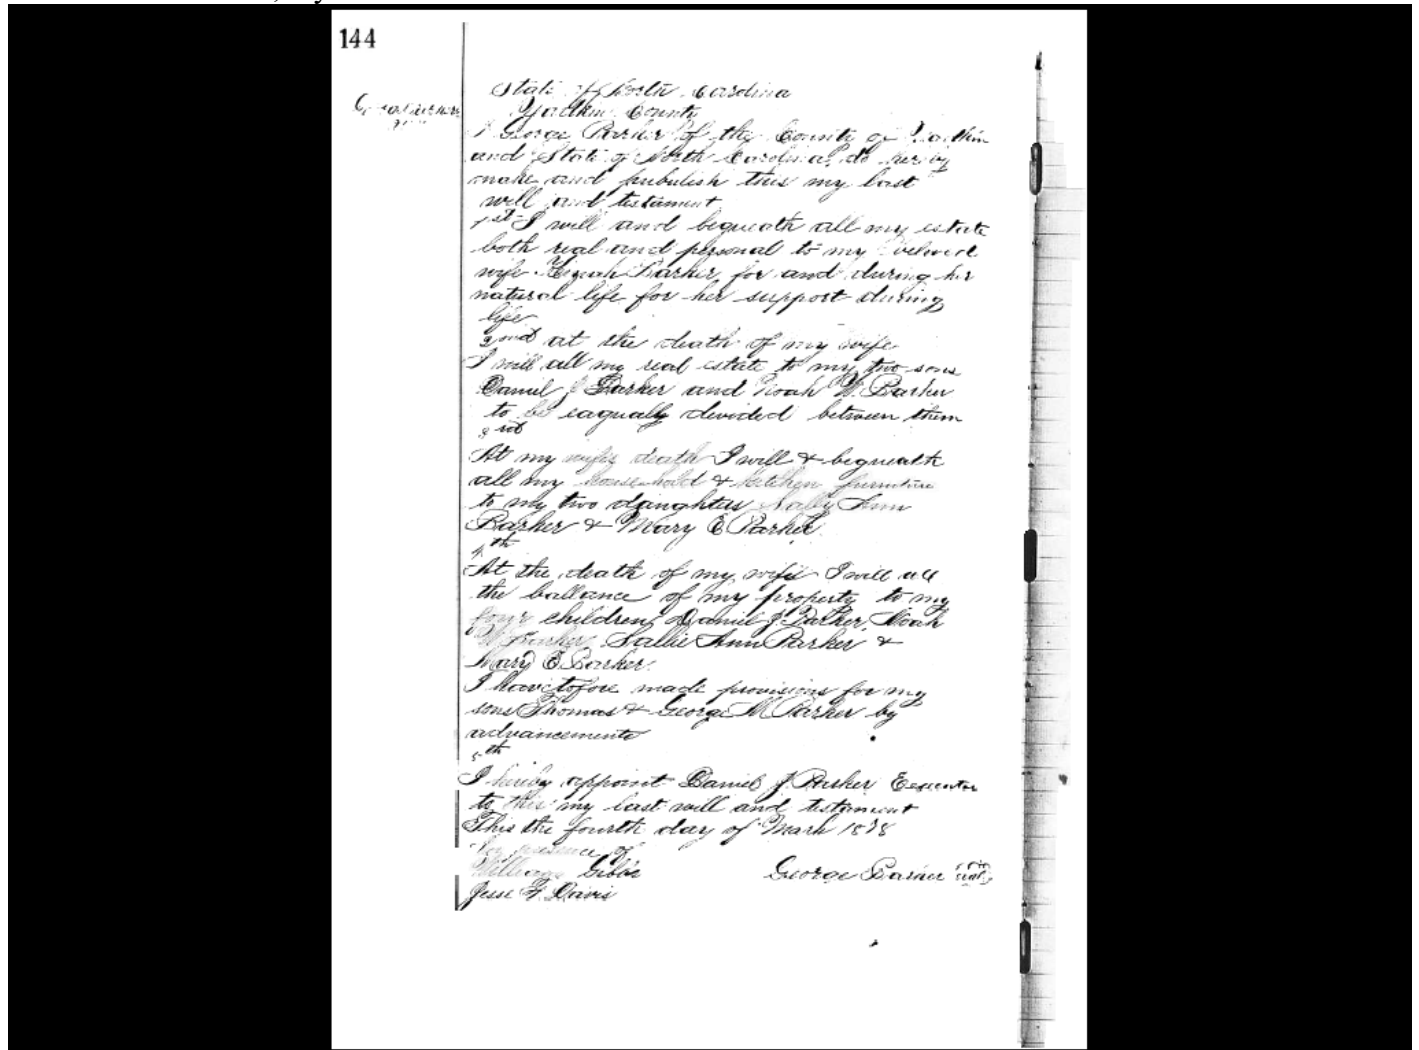 144
State of North Carolina
Yadkin County
I George Parker of the County of Yadkin
and State of North Carolina do her by
make and pubulish this my last
will and testament
1st I will and bequeath all my estate
both real and personal to my beloved
wife Parker for and during her
natural life for her support during
life
2nd at the death of my wife
I will all my real estate to my two sons
Daniel J Parker and Noah W. Parker
to be eaqually devided between them
3rd
At my wifes death I will & bequeath
all my household & kitchen furniture
to my two daughters Sally Ann
Parker & Mary E Parker
4th
At the death of my wife I will all
the ballance of my property to my
four children Daniel J. Parker Noah
W Parker Sallie Ann Parker &
Mary E Parker.
I have tofore made provisions for my
sons Thomas & George M Parker by
advancements
5th
I hereby appoint Daniel J. Parker Executor
to this my last will and testament
This the fourth day of March 1878
In presence of
William Gibbs
George Parker
Jesse F. Davis